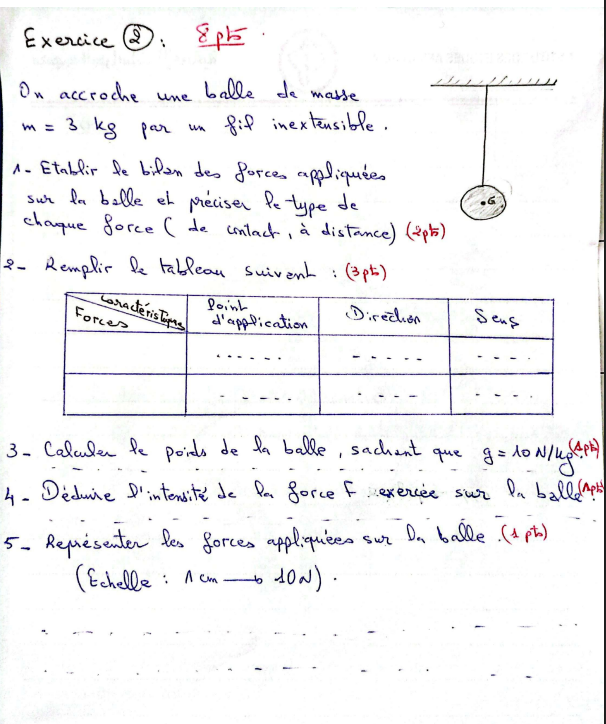 Exercice ②: 8 pts
On accroche une balle de masse
m = 3 kg par un fil inextensible.
1- Etablir le bilan des forces appliquées
sur la balle et préciser le type de
chaque force ( de contact, à distance) (2pts)
G
2- Remplir le tableau suivant : (3 pts)
Caractéristiques Forces | Point d'application | Direction | Sens
3- Calculer le poids de la balle, sachant que g = 10 N/kg (1pt)
4- Déduire l'intensité de la force F exercée sur la balle (1pt)
5- Représenter les forces appliquées sur la balle. (1 pts)
(Echelle : 1 cm → 10N).